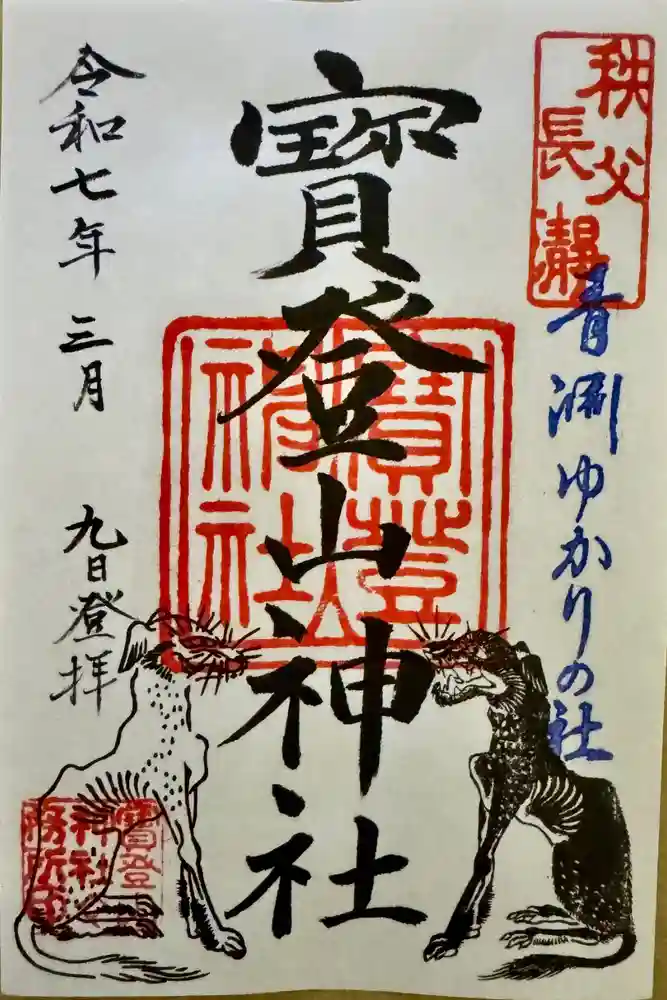 秩父
長瀞
青淵ゆかりの社
寳登山神社
寳登
山神
社
令和七年三月
九日登拝
寳登
神社
務所